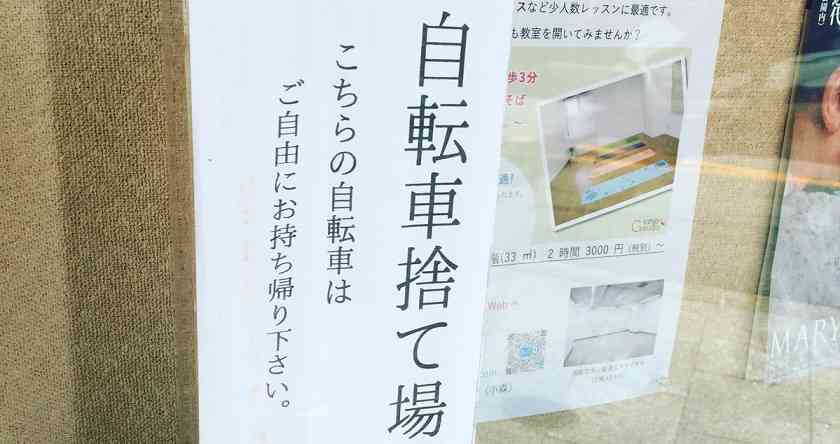 自転車捨て場
こちらの自転車は
ご自由にお持ち帰り下さい。
スなど少人数レッスンに最適です。
も教室を開いてみませんか？
歩3分
そば
～
適!
階(33 ㎡) 2 時間 3000 円 (税別) ～
Web
(小森)
MAR